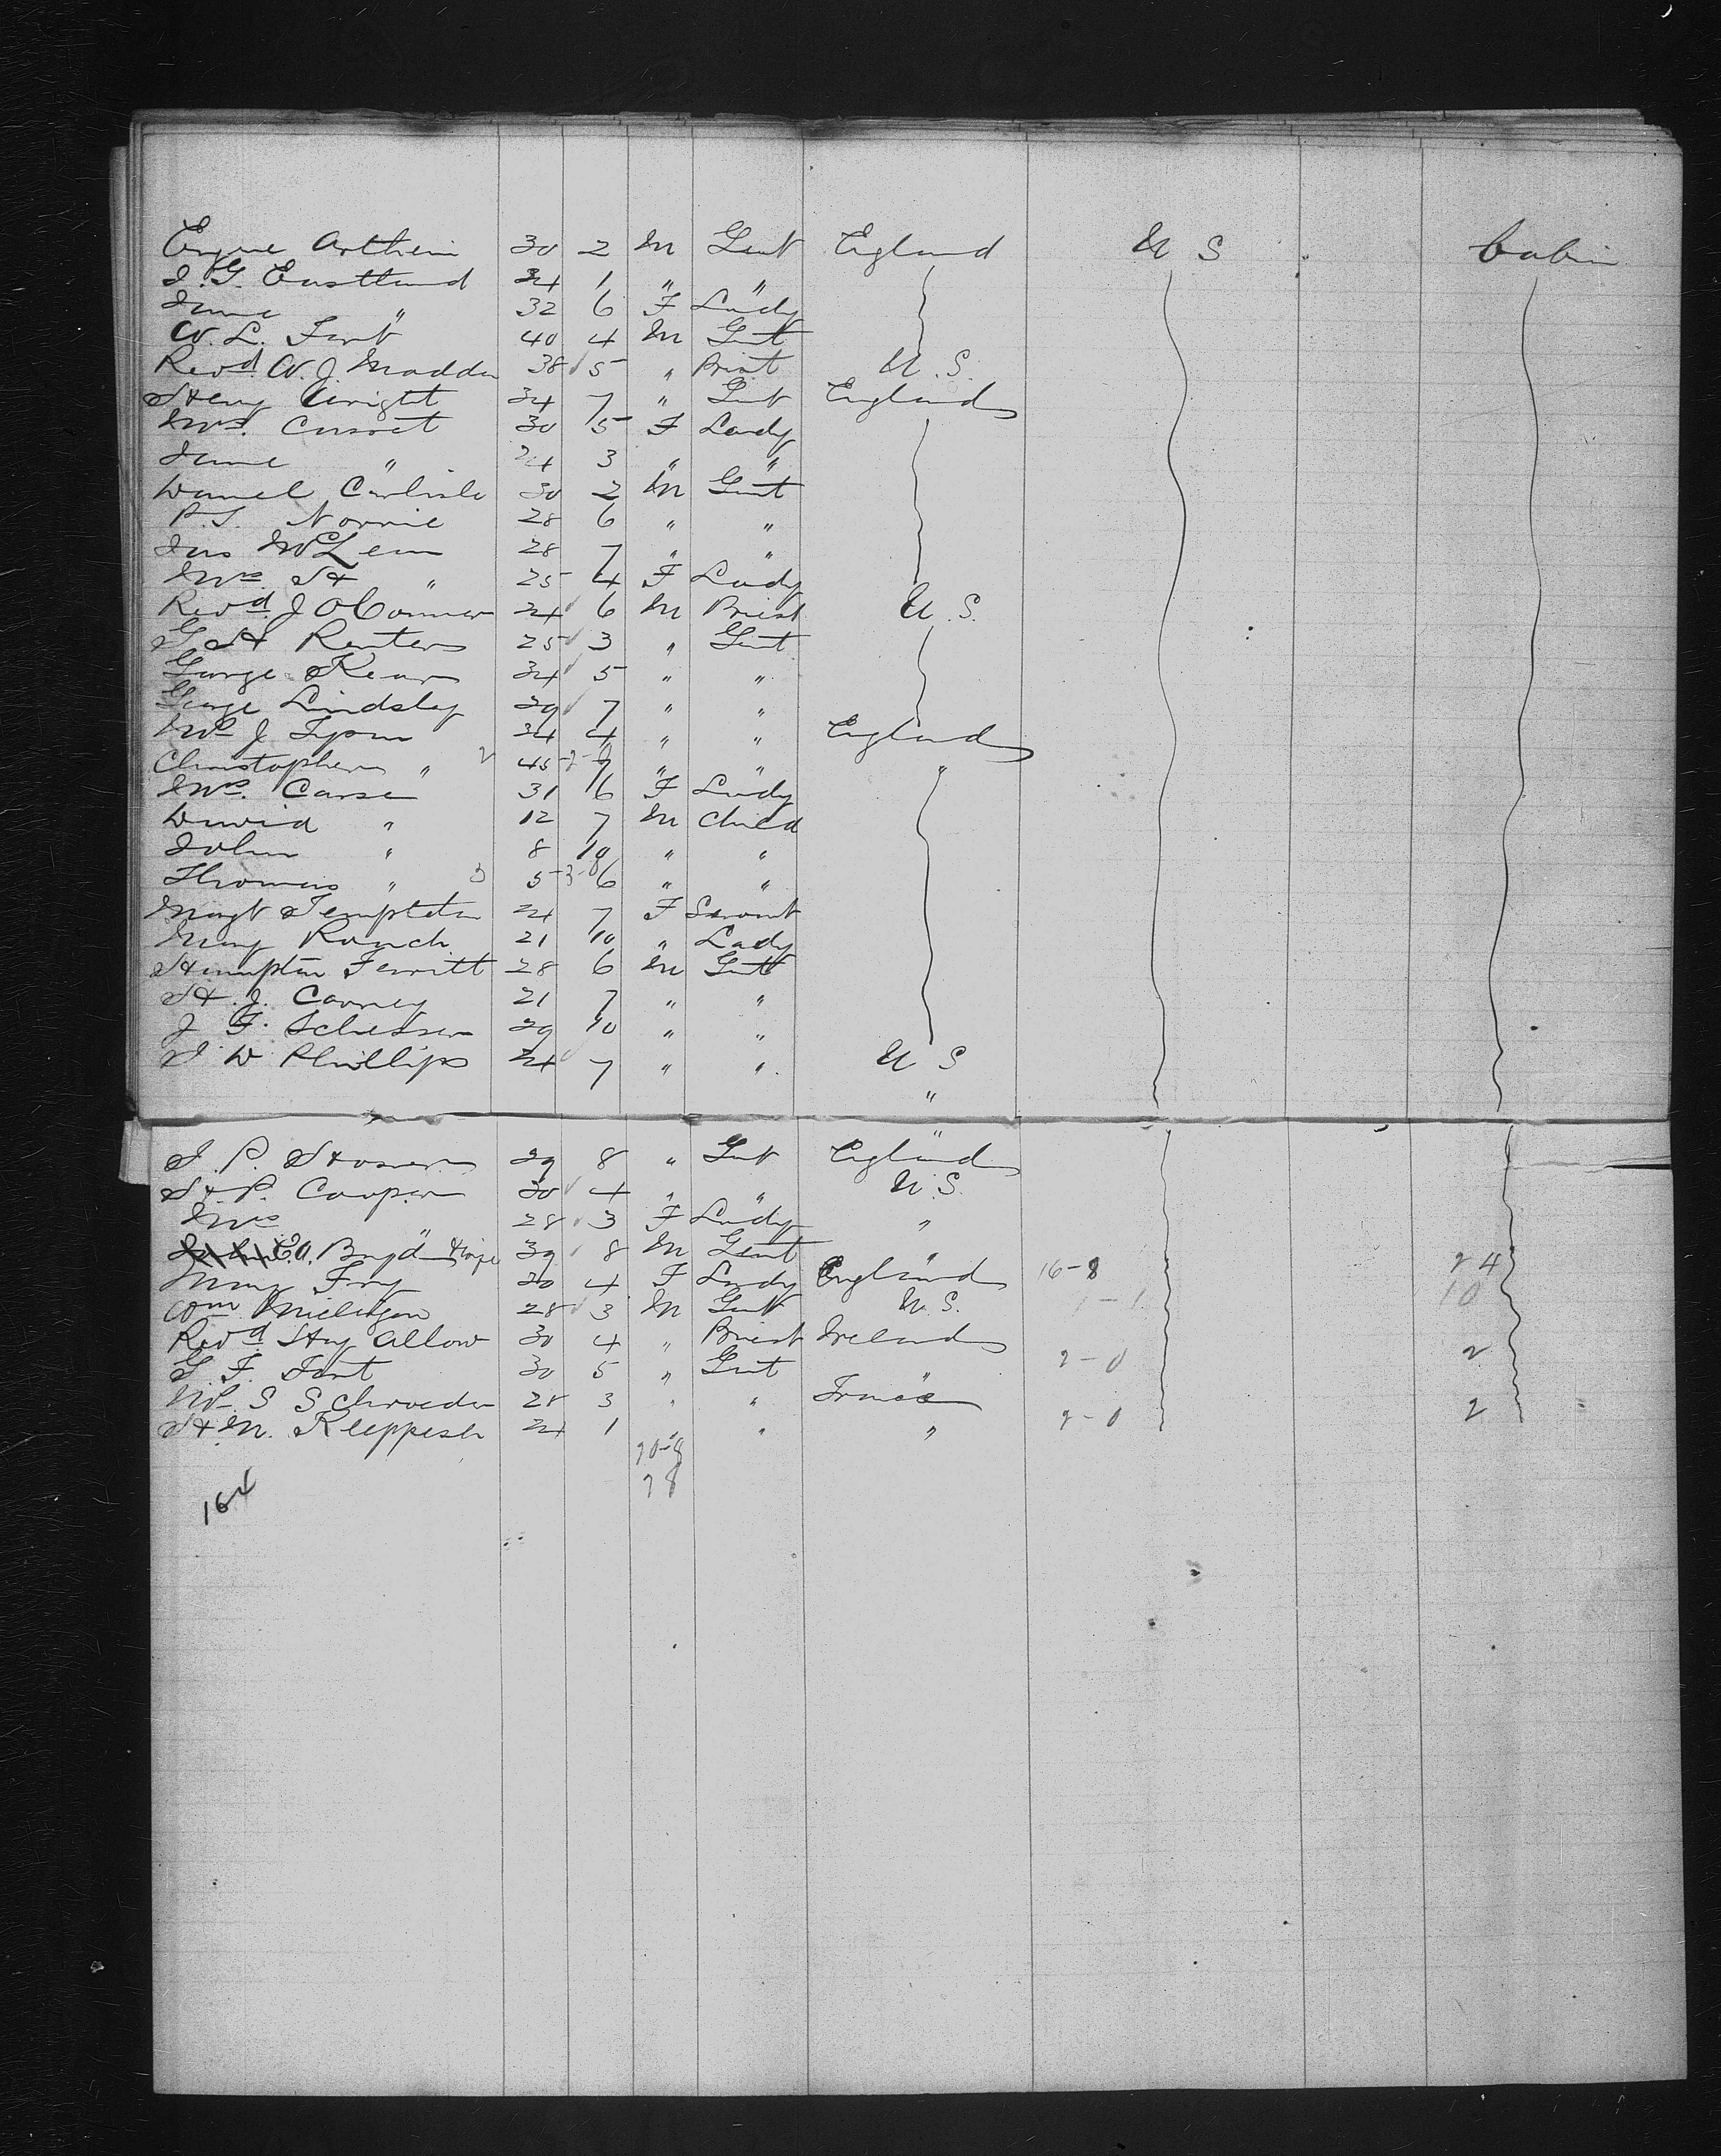 Eugene Arthein 30 2 M Gent England U S Cabin
J. G. Eastland 34 1 " "
Jane " 32 6 F Lady
W. L. Fent 40 4 M Gent
Revd. W. J. Madden 38 5 " Priest U. S.
Heny Wright 34 7 " Gent England
Mrs. Cusset 30 5 F Lady
Jane " 24 3 " "
Daniel Carlisle 30 2 M Gent
P. S. Norrie 28 6 " "
Jas McLean 28 7 " "
Mrs H " 25 4 F Lady
Revd. J OConnor 24 6 M Priest U. S.
G H Renters 25 3 " Gent
George Kear 34 5 " "
George Lindsley 29 7 " "
J 34 4 " " England
Christopher " 2 45 7 " " "
Mrs. Carse 31 6 F Lady
David " 12 7 M Child
John " 8 10 " "
Thomas " 3 5 6 " "
Margt Templeton 24 7 F Servant
Mary Ranch 21 10 " Lady
Hampton Ferritt 28 6 M Gent
H. J. Carney 21 7 " "
J F. 29 10 " "
J W Phillips 24 7 " " U S
"
J. P. 29 8 " Gent England
H. P. Cooper 30 4 " " U. S.
Mrs " 28 3 F Lady "
C. A. Boyd & Wife 39 8 M Gent "
Mary Fry 20 4 F Lady England 16-8 24
Wm Milligan 28 3 M Gent U. S. 1-1 10
Revd. Hy Allow 30 4 " Priest Ireland
G. F. Fent 30 5 " Gent " 2-0 2
S Schroeder 28 3 " " France
H. M. Kleppesh 24 1 " " " 2-0 2
20-8
28
164